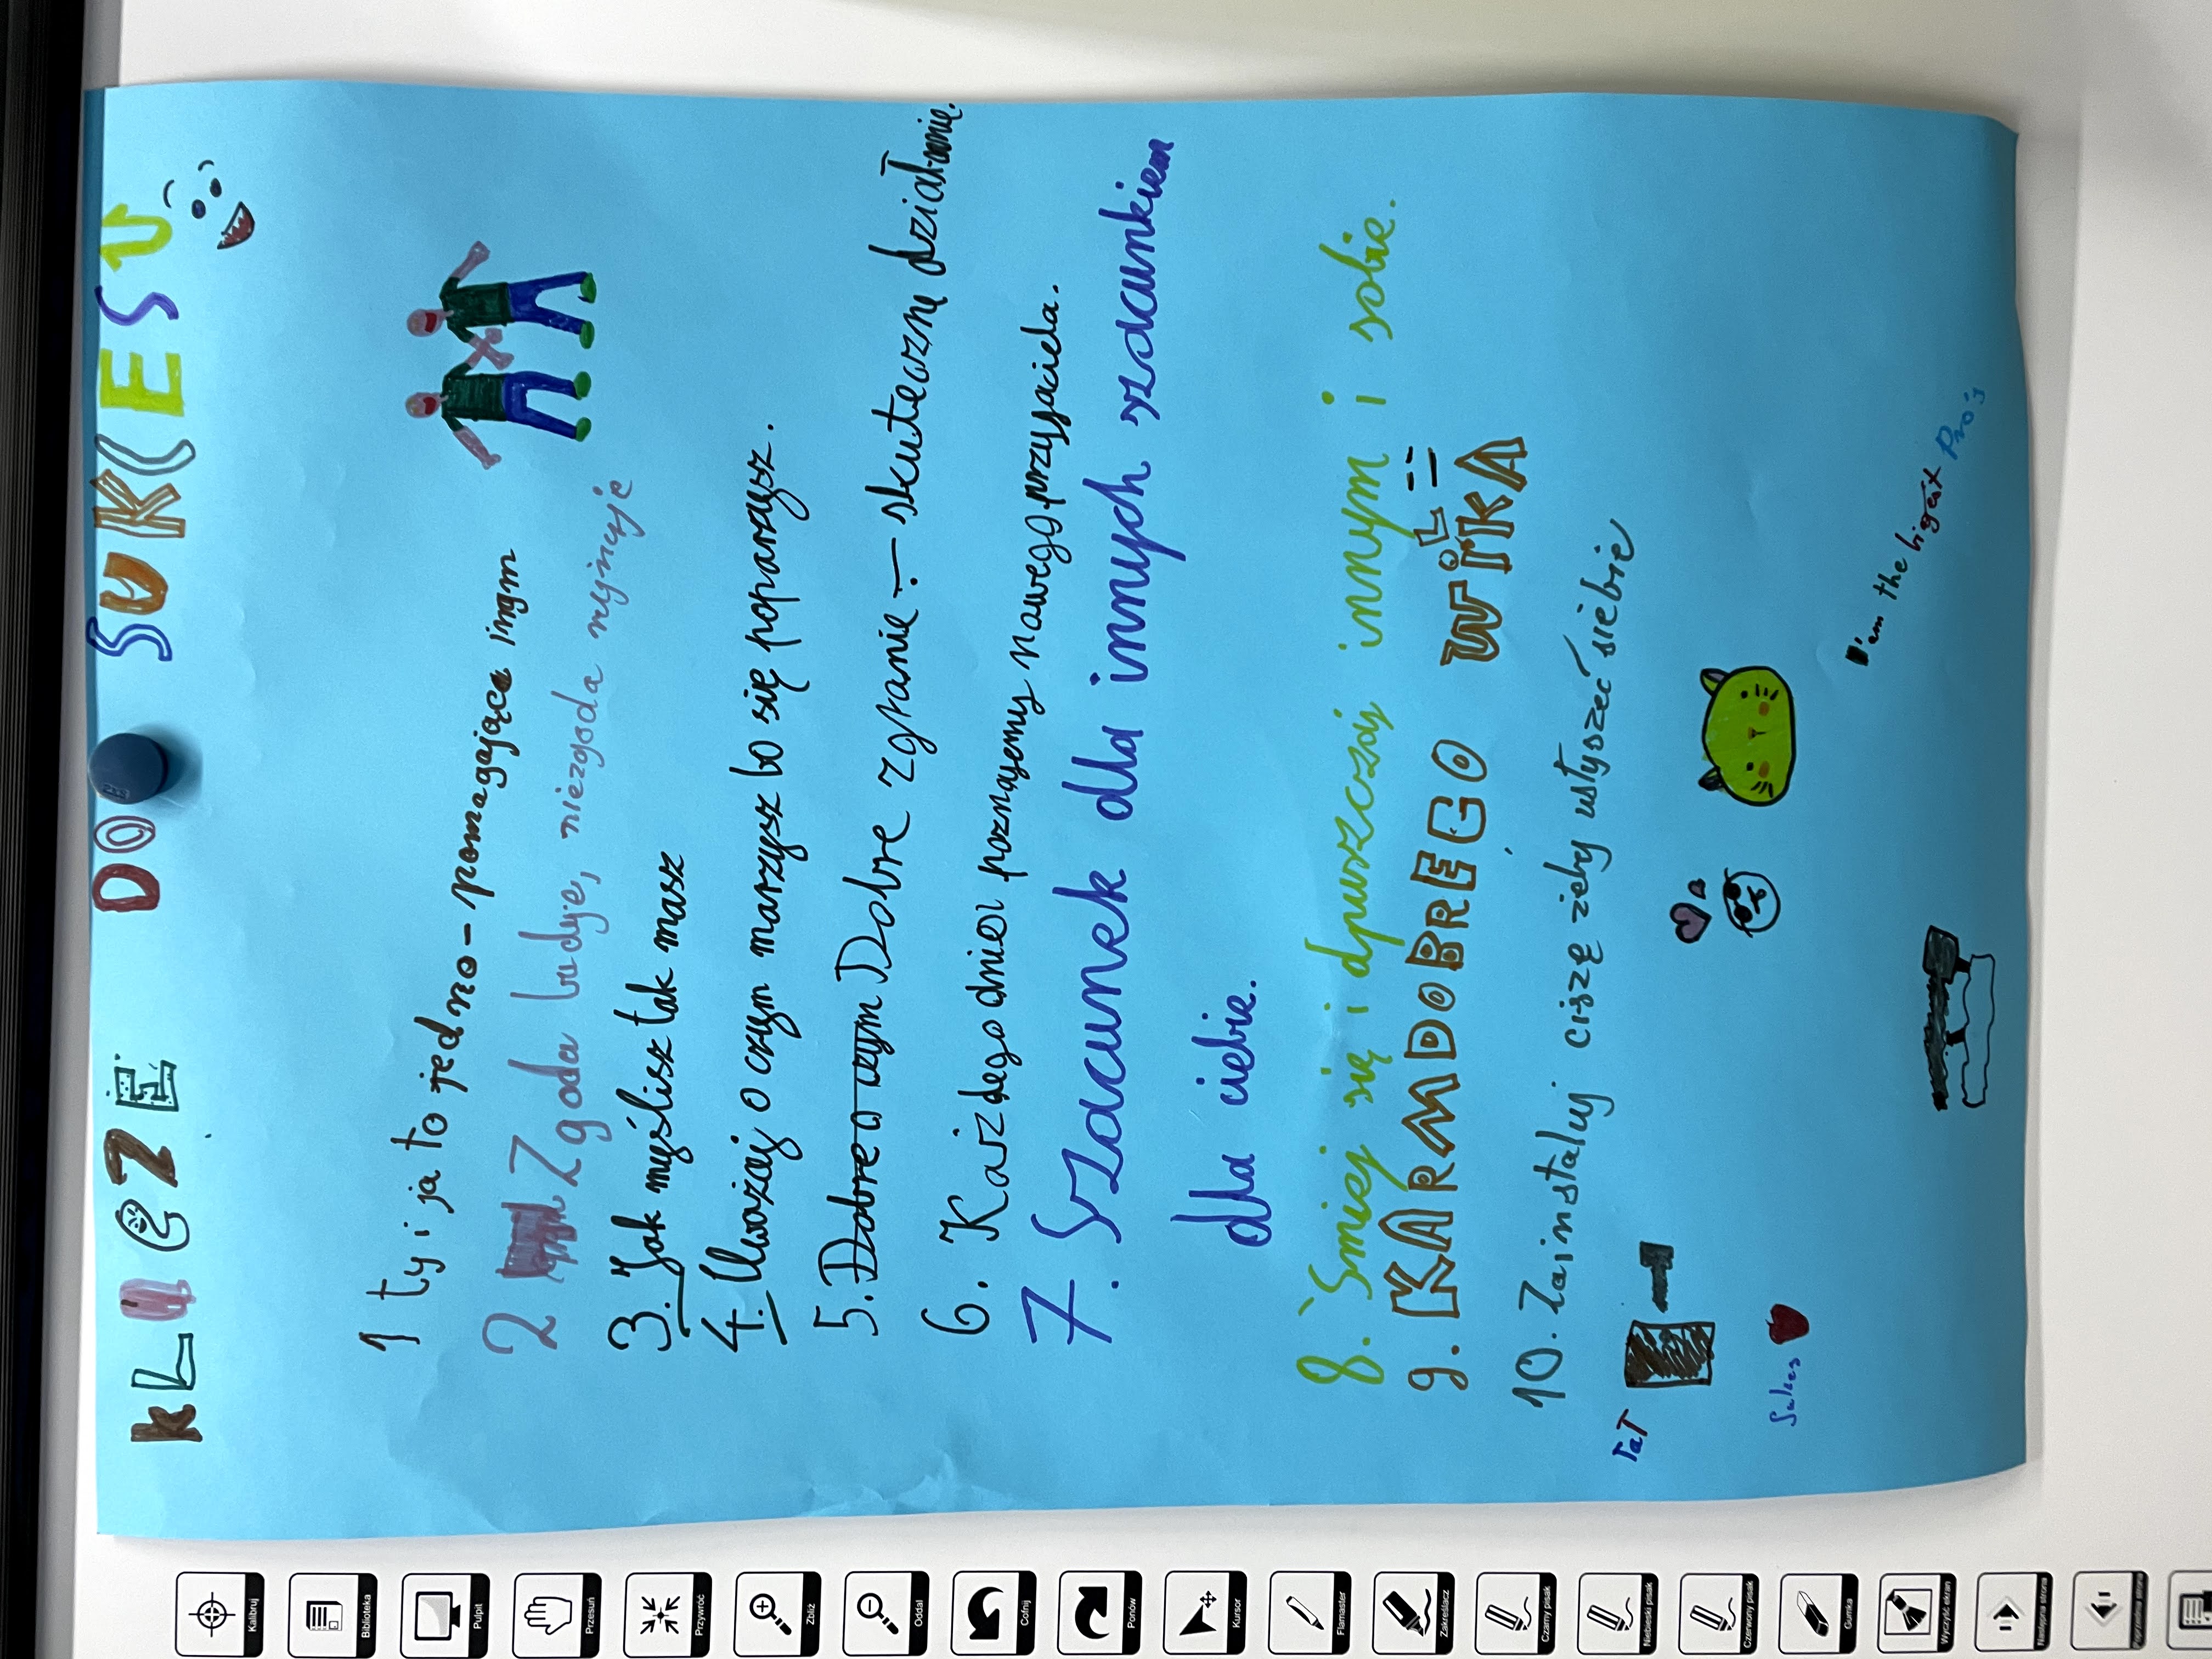 KLUCZE DO SUKCESU
1 ty i ja to jedno - pomagające ingm
2 Zgoda buduje, niezgoda rujnuje
3. Jak myślisz tak masz
4. Uważaj o czym marzysz bo się poparzysz.
5. Dobre a czym Dobre zgranie - skuteczne działanie.
6. Każdego dnia poznajemy nowego przyjaciela.
7. Szacunek dla innych szacunkiem
dla ciebie.
8. Śmiej się i dpuszczaj innym i sobie.
9. KARMDOBREGO WILKA
10. Zainstaluj ciszę żeby usłyszeć siebie
TaT
Sukces
I'am the higest Pro's
Kalibruj
Biblioteka
Pulpit
Przesuń
Przywróć
Zbliż
Oddal
Cofnij
Ponów
Kursor
Flamaster
Zakreślacz
Czarny pisak
Niebieski pisak
Czerwony pisak
Gumka
Wyczyść ekran
Następna strona
Poprzednia strona